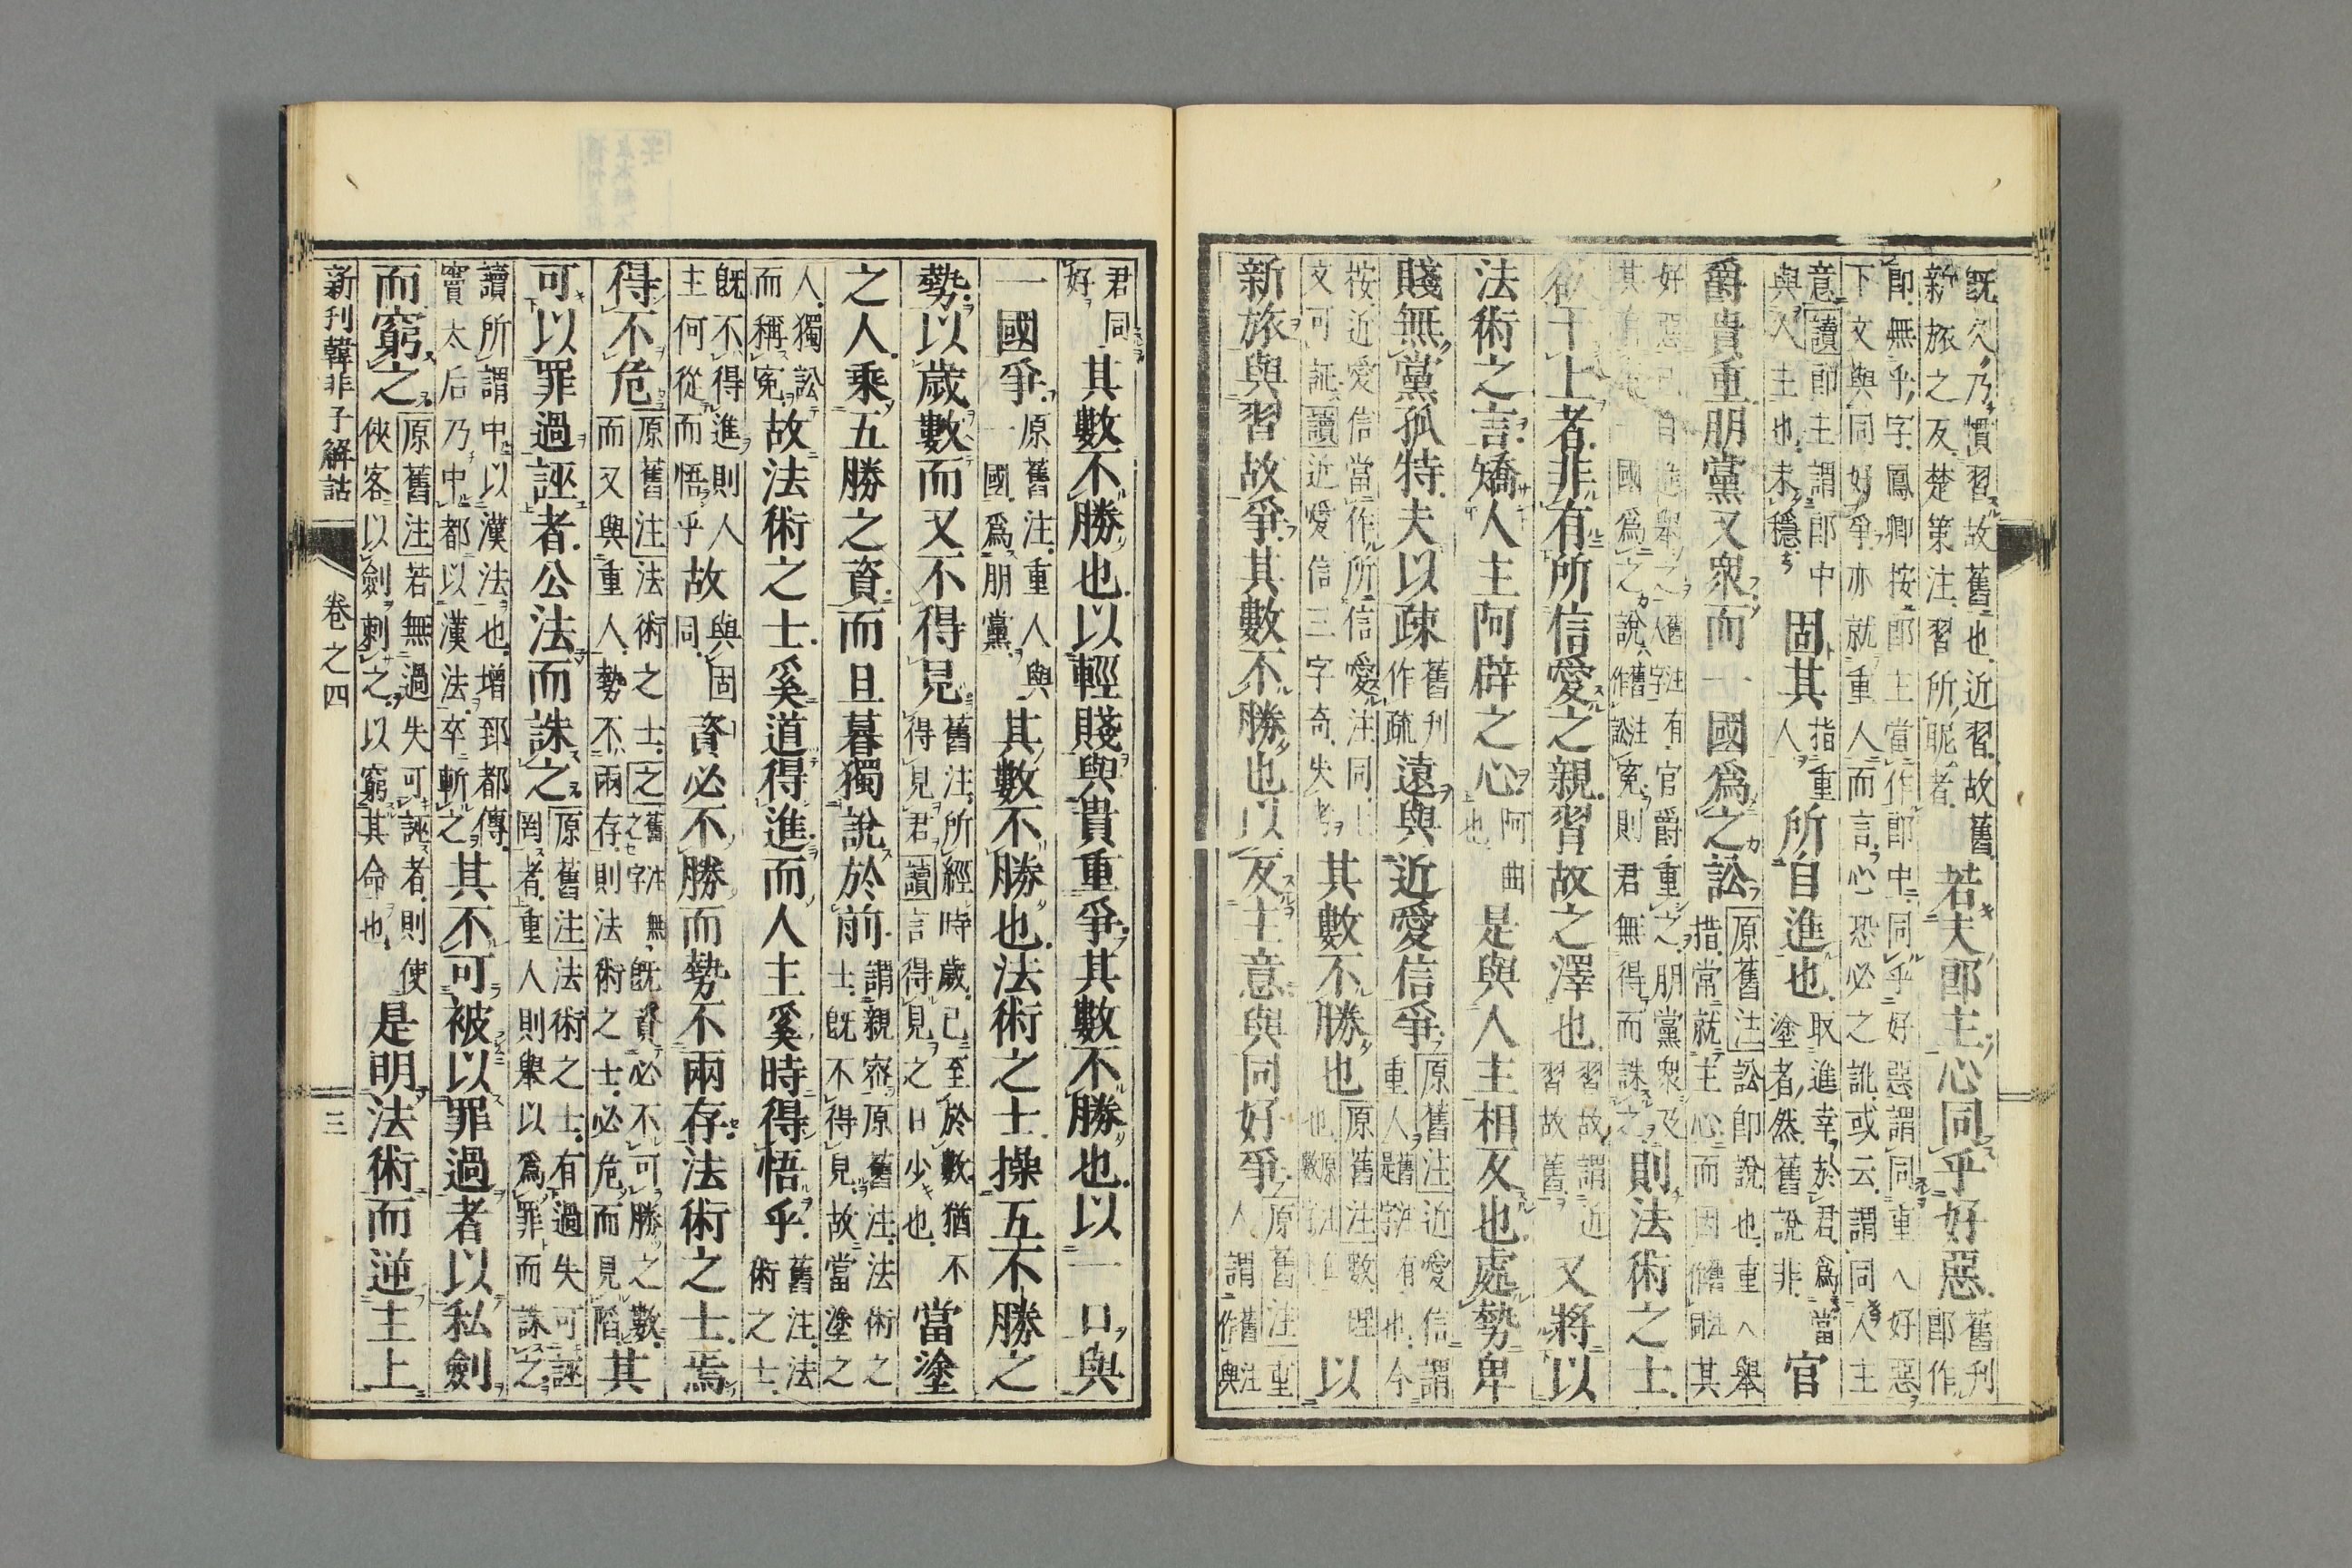 既久乃慣習故舊也近習故舊
新旅之反楚策注習所昵者
若夫郎主心同乎好惡
舊刊
郎作
卽無乎字鳳卿按郎主當作郎中同乎好惡謂同重人好惡
下文與同好爭亦就重人而言心恐必之訛或云謂同人主
意讀郎主謂郎中
與人主也未穩
固其
指重
人
所自進也
取進幸於君爲當
塗者然舊說非
官
爵貴重朋黨又衆而一國爲之訟
原舊注訟卽說也重人舉
措常就主心而因
其
好惡
自進舉之
有官爵重之朋黨衆及
國爲之說
冤則君無得而誅之
則法術之士
欲干上者非有所信愛之親習故之澤也
習故謂近
習故舊
又將以
法術之言矯人主阿辟之心
阿曲
也
是與人主相反也處勢卑
賤無黨孤特夫以疎
舊刊
作疏
遠與近愛信爭
原舊注近愛信謂
重人
有
也今
按近愛信當作所信愛注同
文可証讀近愛信三字奇失考
其數不勝也
原舊注數理
也
以
新旅與習故爭其數不勝也以反主意與同好爭
原舊注重
人謂
君同
好
其數不勝也以輕賤與貴重爭其數不勝也以一口與
一國爭
原舊注重人與
一國爲朋黨
其數不勝也法術之士操五不勝之
勢以歲數而又不得見
舊注所經時歲已至於數猶不
得見君讀言得見之日少也
當塗
之人乘五勝之資而旦暮獨說於前
謂親密原舊注法術之
士旣不得見故當塗之
人獨訟
而稱冤
故法術之士奚道得進而人主奚時得悟乎
舊注法
術之士
旣不得進則人
主何從而悟乎
故
與固
同
資必不勝而勢不兩存法術之士焉
得不危
原舊注法術之士之
無旣資必不可勝之數
而又與重人勢不兩存則法術之士必危而見陷
其
可以罪過誣者公法而誅之
原舊注法術之士有過失可誣
罔者重人則舉以爲罪而誅之
讀所謂中以漢法也增郅都傳
竇太后乃中都以漢法卒斬之
其不可被以罪過者以私劍
而窮之
原舊注若無過失可誣者則使
俠客以劍刺之以窮其命也
是明法術而逆主上
新刊韓非子解詁
卷之四
三